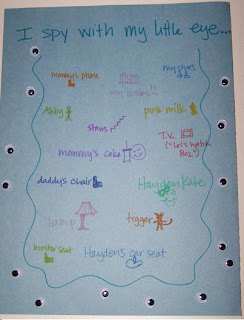 I spy with my little eye...
mommy's phone
my shoes
my babies
Abby
pink milk
stairs
T.V.
("Let's watch
Boz")
mommy's coke
daddy's chair
Hayden Kate
lamp
tigger
Hayden's car seat